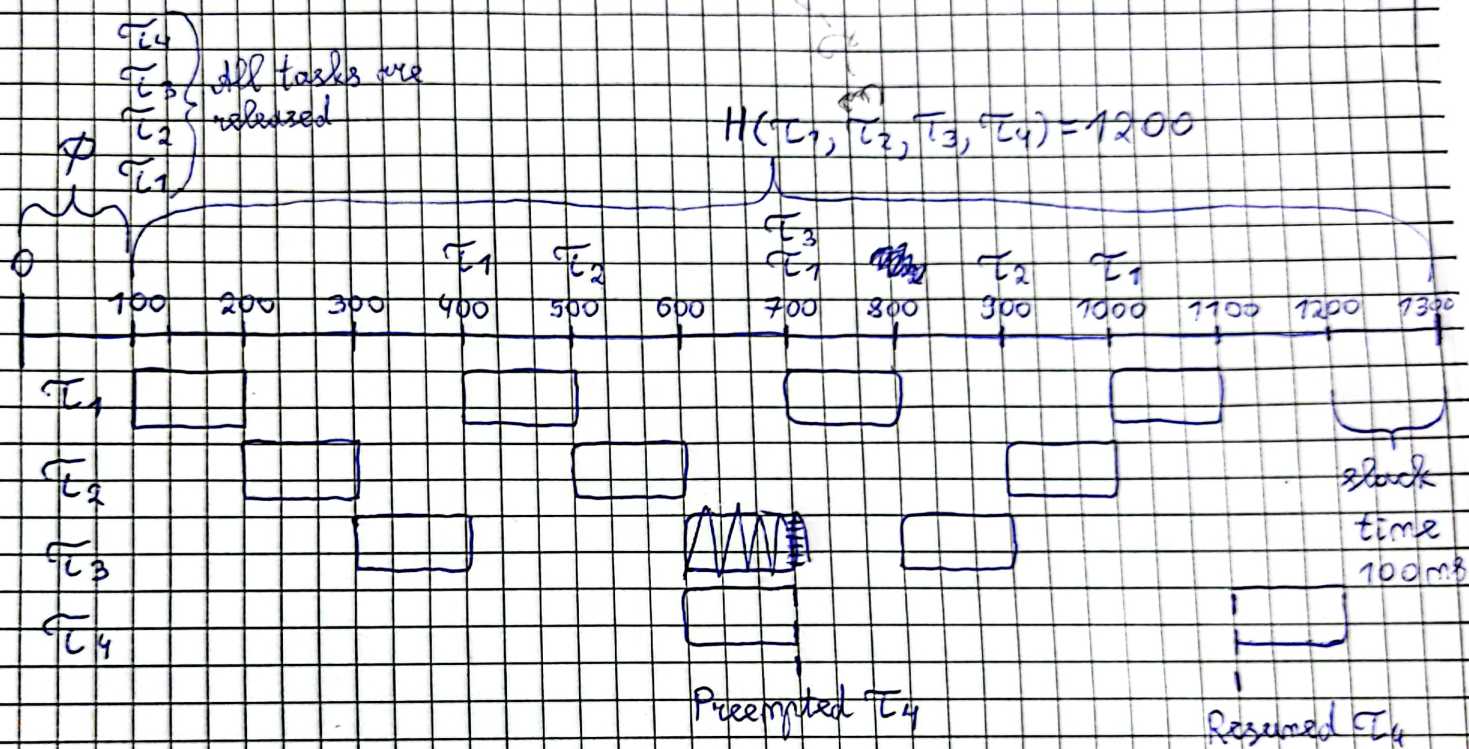 τ4
τ3 All tasks are
τ2 released
τ1
φ
H(τ1, τ2, τ3, τ4) = 1200
τ3
0 τ1 τ2 τ1 τ2 τ1
100 200 300 400 500 600 700 800 900 1000 1100 1200 1300
τ1
τ2 slack
time
τ3 100ms
τ4
Preempted τ4 Resumed τ4